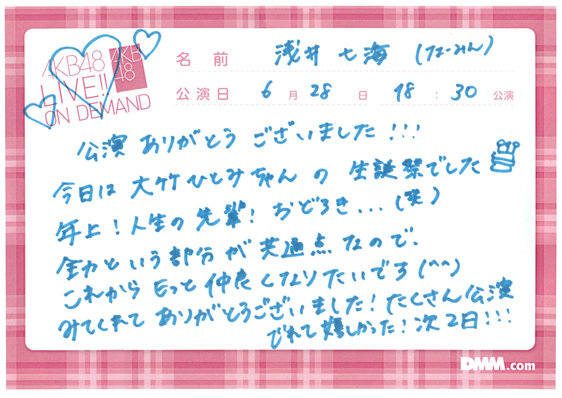 AKB48
LIVE!!
ON DEMAND
AKB
48
名前 浅井 七海 (なーみん)
公演日 6月 28日 18:30 公演
公演 ありがとう ございました!!!
今日は 大竹ひとみちゃん の 生誕祭でした
年上!人生の先輩! おどろき...(笑)
全力という部分が共通点なので、
これからもっと仲良くなりたいです(^^)
みてくれて ありがとうございました!たくさん公演
でれて嬉しかった!次2日!!!
DMM.com